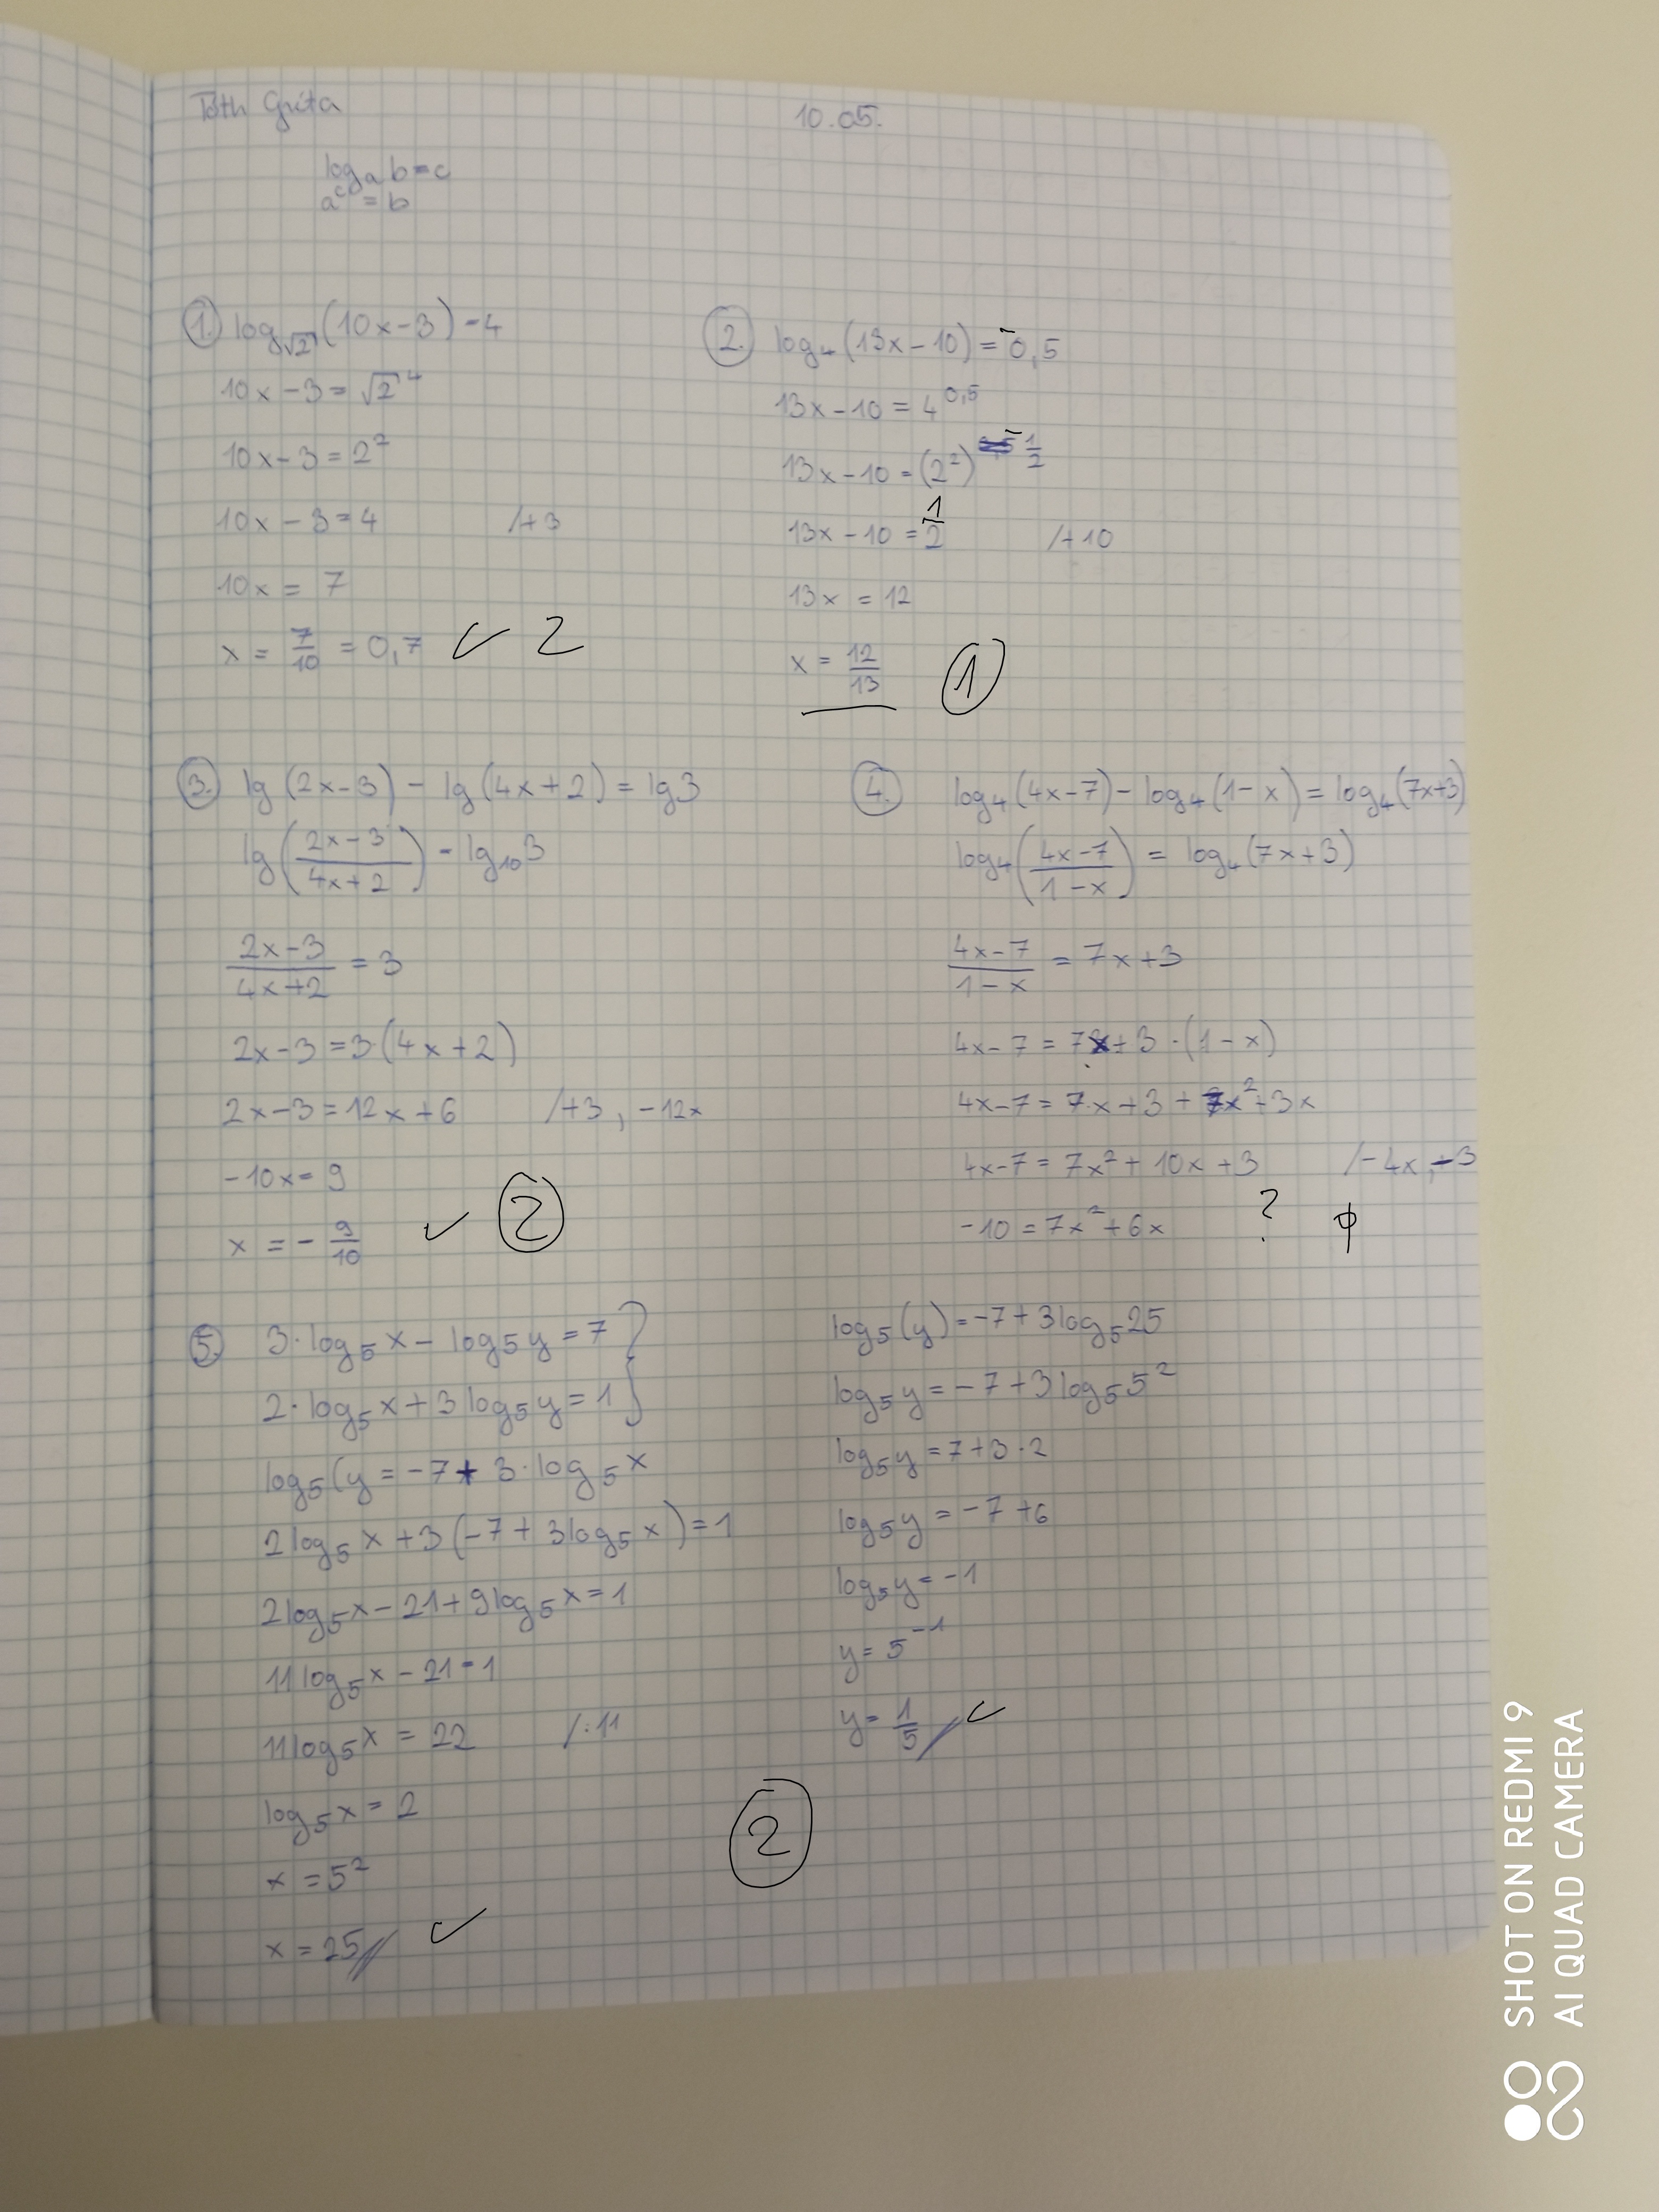 Tóth Gréta 10.05.
log_a b=c
a^c = b
1. log_√2 (10x-3)=4
10x-3=√2^4
10x-3=2^2
10x-3=4 /+3
10x = 7
x = 7/10 = 0,7 ✓ 2
2. log_4 (13x-10) = -0,5
13x-10 = 4^0,5
13x-10 = (2^2)^-1/2
13x-10 = 1/2 /+10
13x = 12
x = 12/13 1
3. lg (2x-3) - lg (4x+2) = lg3
lg((2x-3)/(4x+2)) = lg_10 3
(2x-3)/(4x+2) = 3
2x-3=3·(4x+2)
2x-3=12x+6 /+3, -12x
-10x=9
x = - 9/10 ✓ 2
4. log_4 (4x-7)-log_4 (1-x)=log_4 (7x+3)
log_4 ((4x-7)/(1-x)) = log_4 (7x+3)
(4x-7)/(1-x) = 7x+3
4x-7 = 7x+3·(1-x)
4x-7 = 7x+3+7x^2+3x
4x-7 = 7x^2+10x+3 /-4x, -3
-10=7x^2+6x ? ϕ
5. 3·log_5 x - log_5 y = 7 }
2·log_5 x+3log_5 y=1
log_5 (y = -7+ 3·log_5 x
2log_5 x +3(-7+3log_5 x)=1
2log_5 x-21+9log_5 x=1
11log_5 x-21=1
11log_5 x = 22 /:11
log_5 x = 2
x = 5^2
x = 25 ✓
log_5 (y)=-7+3log_5 25
log_5 y=-7+3log_5 5^2
log_5 y=7+3·2
log_5 y=-7+6
log_5 y=-1
y=5^-1
y= 1/5 ✓
2
SHOT ON REDMI 9
AI QUAD CAMERA